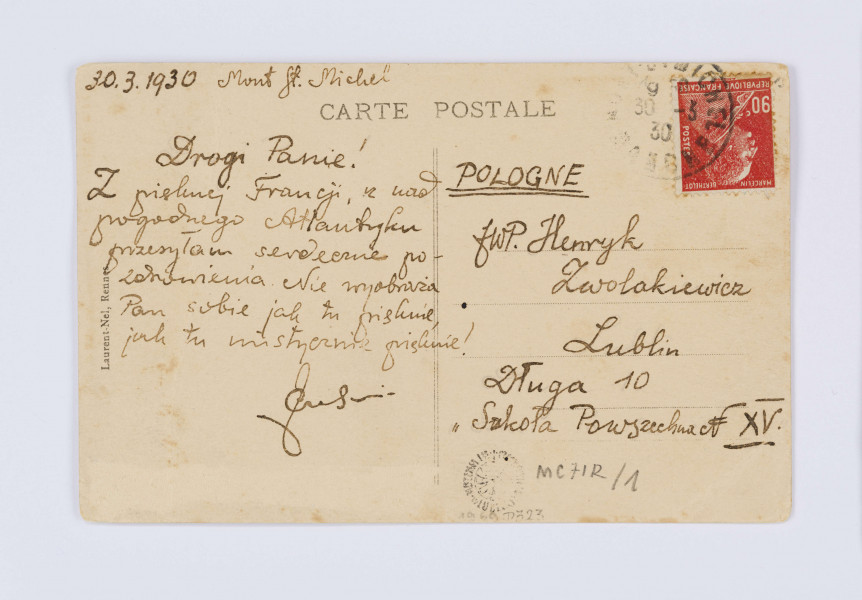 30.3.1930 Mont St. Michel
CARTE POSTALE
Drogi Panie!
Z pięknej Francji, z nad
pogodnego Atlantyku
przesyłam serdeczne po-
zdrowienia. Nie wyobraża
Pan sobie jak tu pięknie
jak tu mistycznie pięknie!
Laurent-Nel, Rennes
POLOGNE
JWP. Henryk
Zwolakiewicz
Lublin
Długa 10
„Szkoła Powszechna № XV.
MC71R/1
REPVBLIQVE FRANÇAISE
90c
POSTES
MARCELIN BERTHELOT
30 -3
30